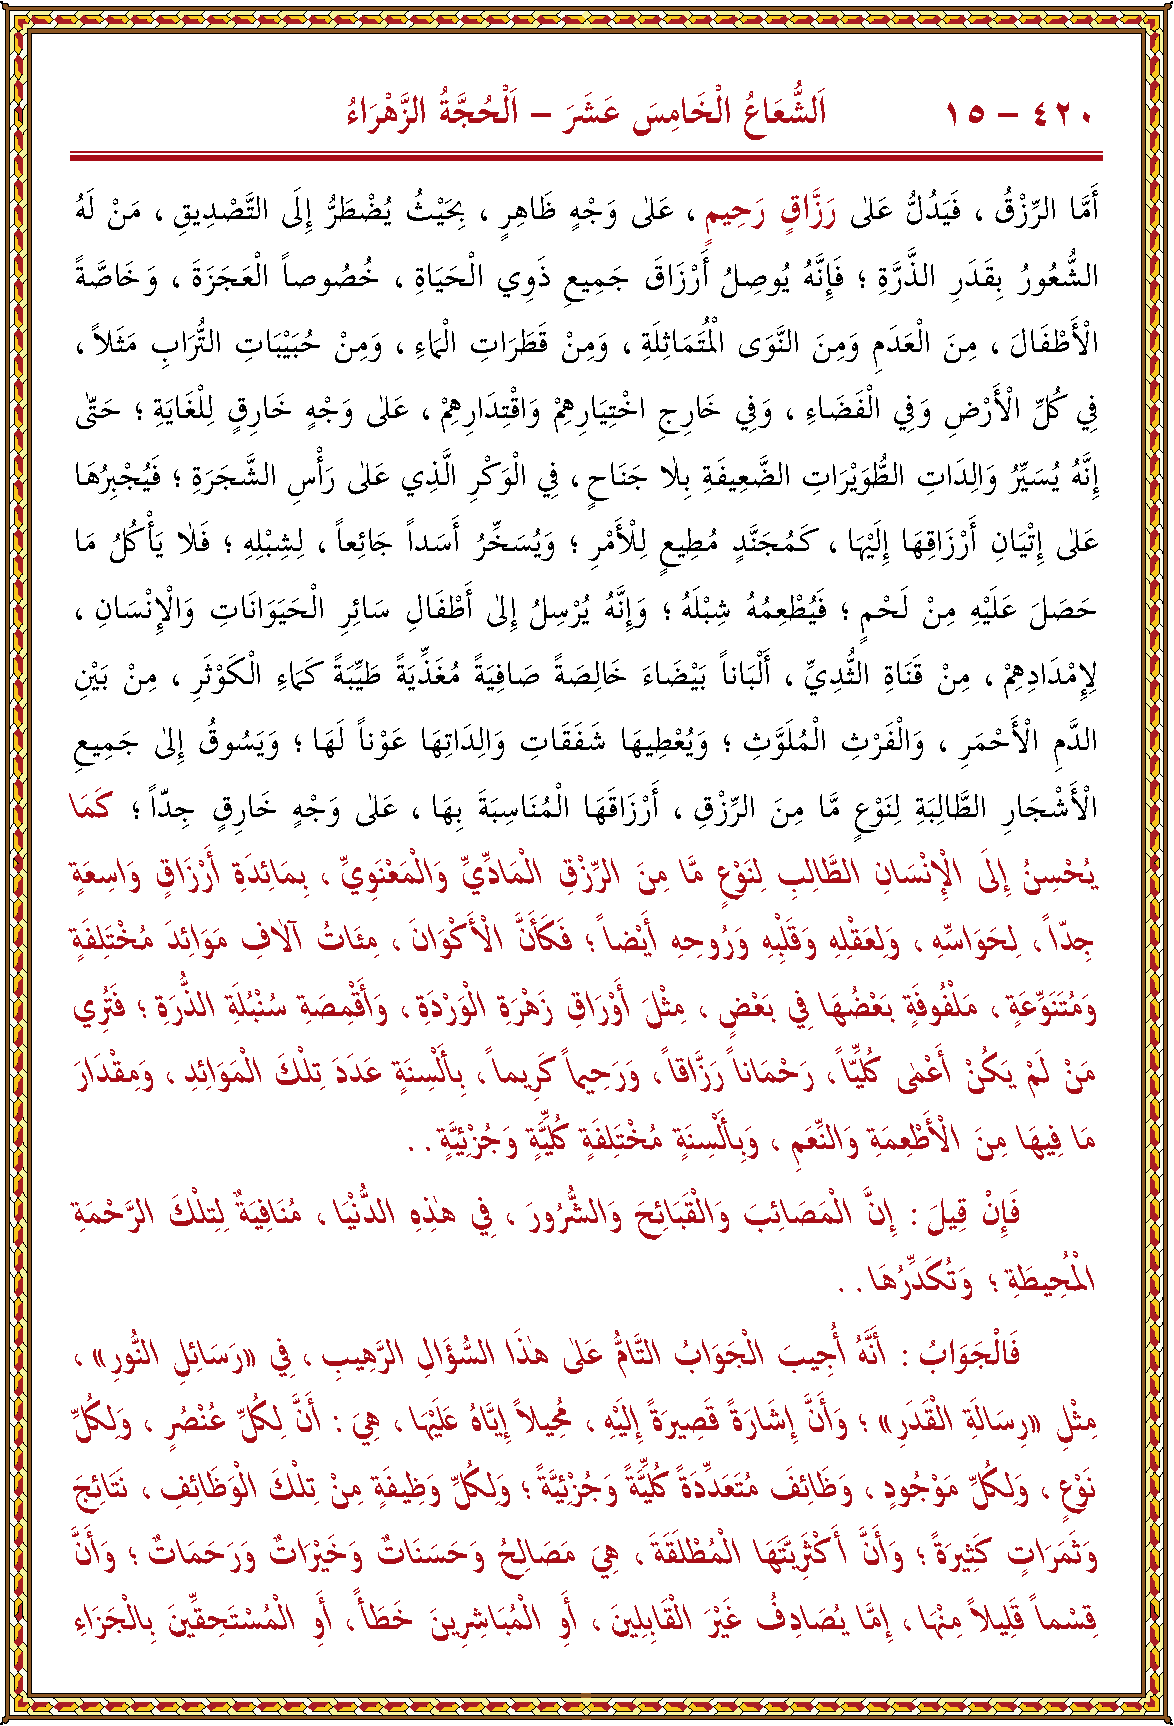 ٤٢٠ – ١٥ اَلشُّعَاعُ الْخَامِسَ عَشَرَ – اَلْحُجَّةُ الزَّهْرَاءُ
أَمَّا الرِّزْقُ ، فَيَدُلُّ عَلٰى رَزَّاقٍ رَحِيمٍ ، عَلٰى وَجْهٍ ظَاهِرٍ ، بِحَيْثُ يُضْطَرُّ إِلَى التَّصْدِيقِ ، مَنْ لَهُ
الشُّعُورُ بِقَدَرِ الذَّرَّةِ ؛ فَإِنَّهُ يُوصِلُ أَرْزَاقَ جَمِيعِ ذَوِي الْحَيَاةِ ، خُصُوصاً الْعَجَزَةَ ، وَخَاصَّةً
الْأَطْفَالَ ، مِنَ الْعَدَمِ وَمِنَ النَّوَى الْمُتَمَاثِلَةِ ، وَمِنْ قَطَرَاتِ الْمَاءِ ، وَمِنْ حُبَيْبَاتِ التُّرَابِ مَثَلاً ،
فِي كُلِّ الْأَرْضِ وَفِي الْفَضَاءِ ، وَفِي خَارِجِ اخْتِيَارِهِمْ وَاقْتِدَارِهِمْ ، عَلٰى وَجْهٍ خَارِقٍ لِلْغَايَةِ ؛ حَتّٰى
إِنَّهُ يُسَيِّرُ وَالِدَاتِ الطُّوَيْرَاتِ الضَّعِيفَةِ بِلَا جَنَاحٍ ، فِي الْوَكْرِ الَّذِي عَلٰى رَأْسِ الشَّجَرَةِ ؛ فَيُجْبِرُهَا
عَلٰى إِتْيَانِ أَرْزَاقِهَا إِلَيْهَا ، كَمُجَنَّدٍ مُطِيعٍ لِلْأَمْرِ ؛ وَيُسَخِّرُ أَسَداً جَائِعاً ، لِشِبْلِهِ ؛ فَلَا يَأْكُلُ مَا
حَصَلَ عَلَيْهِ مِنْ لَحْمٍ ؛ فَيُطْعِمُهُ شِبْلَهُ ؛ وَإِنَّهُ يُرْسِلُ إِلٰى أَطْفَالِ سَائِرِ الْحَيَوَانَاتِ وَالْإِنْسَانِ ،
لِإِمْدَادِهِمْ ، مِنْ قَنَاةِ الثُّدِيِّ ، أَلْبَاناً بَيْضَاءَ خَالِصَةً صَافِيَةً مُغَذِّيَةً طَيِّبَةً كَمَاءِ الْكَوْثَرِ ، مِنْ بَيْنِ
الدَّمِ الْأَحْمَرِ ، وَالْفَرْثِ الْمُلَوَّثِ ؛ وَيُعْطِيهَا شَفَقَاتِ وَالِدَاتِهَا عَوْناً لَهَا ؛ وَيَسُوقُ إِلٰى جَمِيعِ
الْأَشْجَارِ الطَّالِبَةِ لِنَوْعٍ مَّا مِنَ الرِّزْقِ ، أَرْزَاقَهَا الْمُنَاسِبَةَ بِهَا ، عَلٰى وَجْهٍ خَارِقٍ جِدّاً ؛ كَمَا
يُحْسِنُ إِلَى الْإِنْسَانِ الطَّالِبِ لِنَوْعٍ مَّا مِنَ الرِّزْقِ الْمَادِّيِّ وَالْمَعْنَوِيِّ ، بِمَائِدَةِ أَرْزَاقٍ وَاسِعَةٍ
جِدّاً ، لِحَوَاسِّهِ ، وَلِعَقْلِهِ وَقَلْبِهِ وَرُوحِهِ أَيْضاً ؛ فَكَأَنَّ الْأَكْوَانَ ، مِئَاتُ آلَافِ مَوَائِدَ مُخْتَلِفَةٍ
وَمُتَنَوِّعَةٍ ، مَلْفُوفَةٍ بَعْضُهَا فِي بَعْضٍ ، مِثْلَ أَوْرَاقِ زَهْرَةِ الْوَرْدَةِ ، وَأَقْمِصَةِ سُنْبُلَةِ الذُّرَةِ ؛ فَتُرِي
مَنْ لَمْ يَكُنْ أَعْمٰى كُلِّيّاً ، رَحْمَاناً رَزَّاقاً ، وَرَحِيماً كَرِيماً ، بِأَلْسِنَةٍ عَدَدَ تِلْكَ الْمَوَائِدِ ، وَمِقْدَارَ
مَا فِيهَا مِنَ الْأَطْعِمَةِ وَالنِّعَمِ ، وَبِأَلْسِنَةٍ مُخْتَلِفَةٍ كُلِّيَّةٍ وَجُزْئِيَّةٍ . .
فَإِنْ قِيلَ : إِنَّ الْمَصَائِبَ وَالْقَبَائِحَ وَالشُّرُورَ ، فِي هٰذِهِ الدُّنْيَا ، مُنَافِيَةٌ لِتِلْكَ الرَّحْمَةِ
الْمُحِيطَةِ ؛ وَتُكَدِّرُهَا . .
فَالْجَوَابُ : أَنَّهُ أُجِيبَ الْجَوَابُ التَّامُّ عَلٰى هٰذَا السُّؤَالِ الرَّهِيبِ ، فِي «رَسَائِلِ النُّورِ» ،
مِثْلِ «رِسَالَةِ الْقَدَرِ» ؛ وَأَنَّ إِشَارَةً قَصِيرَةً إِلَيْهِ ، مُحِيلاً إِيَّاهُ عَلَيْهَا ، هِيَ : أَنَّ لِكُلِّ عُنْصُرٍ ، وَلِكُلِّ
نَوْعٍ ، وَلِكُلِّ مَوْجُودٍ ، وَظَائِفَ مُتَعَدِّدَةً كُلِّيَّةً وَجُزْئِيَّةً ؛ وَلِكُلِّ وَظِيفَةٍ مِنْ تِلْكَ الْوَظَائِفِ ، نَتَائِجَ
وَثَمَرَاتٍ كَثِيرَةً ؛ وَأَنَّ أَكْثَرِيَّتَهَا الْمُطْلَقَةَ ، هِيَ مَصَالِحُ وَحَسَنَاتٌ وَخَيْرَاتٌ وَرَحَمَاتٌ ؛ وَأَنَّ
قِسْماً قَلِيلاً مِنْهَا ، إِمَّا يُصَادِفُ غَيْرَ الْقَابِلِينَ ، أَوِ الْمُبَاشِرِينَ خَطَأً ، أَوِ الْمُسْتَحِقِّينَ بِالْجَزَاءِ